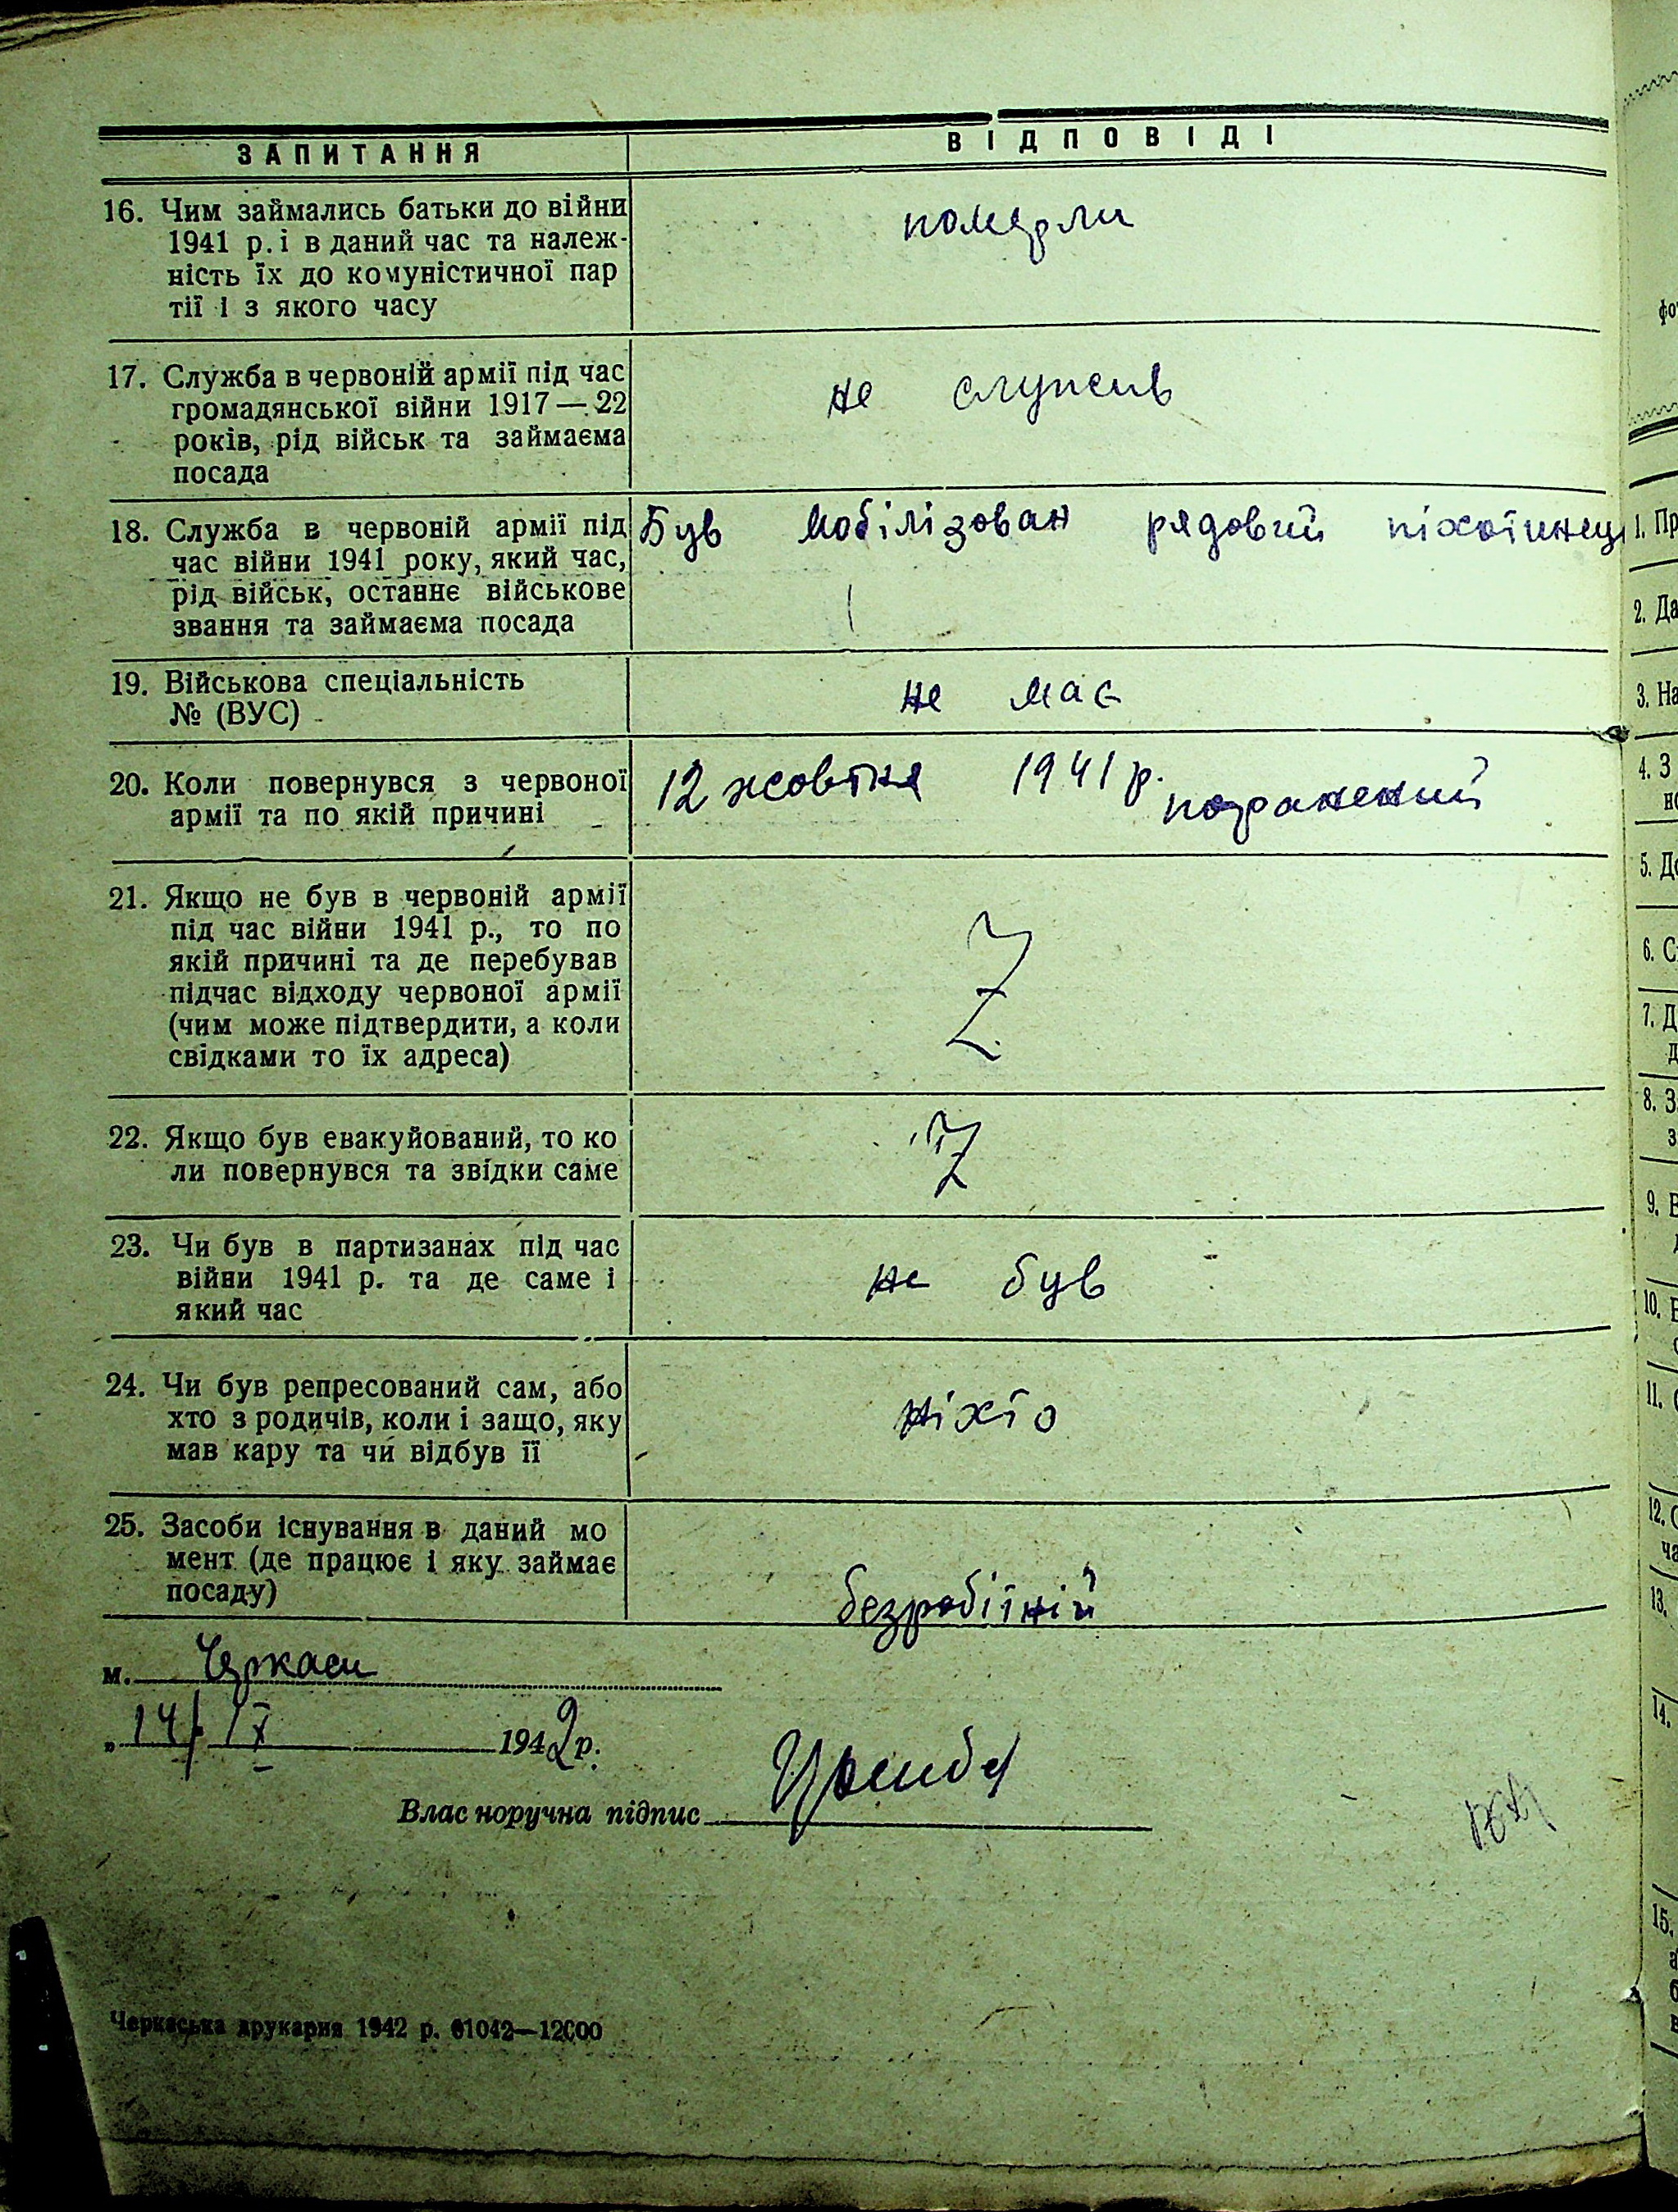 ЗАПИТАННЯ ВІДПОВІДІ
16. Чим займались батьки до війни
1941 р. і в даний час та належ-
ність їх до комуністичної пар
тії і з якого часу
померли
17. Служба в червоній армії під час
громадянської війни 1917—22
років, рід військ та займаєма
посада
не служив
18. Служба в червоній армії під
час війни 1941 року, який час,
рід військ, останнє військове
звання та займаєма посада
Був мобілізован рядовий піхотинець
19. Військова спеціальність
№ (ВУС)
не має
20. Коли повернувся з червоної
армії та по якій причині
12 жовтня 1941 р.
поранений
21. Якщо не був в червоній армії
під час війни 1941 р., то по
якій причині та де перебував
підчас відходу червоної армії
(чим може підтвердити, а коли
свідками то їх адреса)
Z
22. Якщо був евакуйований, то ко
ли повернувся та звідки саме
Z
23. Чи був в партизанах під час
війни 1941 р. та де саме і
який час
не був
24. Чи був репресований сам, або
хто з родичів, коли і защо, яку
мав кару та чи відбув її
ніхто
25. Засоби існування в даний мо
мент (де працює і яку займає
посаду)
безробітній
м. Черкаси
„ 14/ IX 1942 р.
Власноручна підпис
Черкаська друкарня 1942 р. 61042—12000
1. Пр
2. Да
3. На
4. З
5. До
6. С
7. Д
8. З
9. В
10.
11.
12.
13.
14.
15.